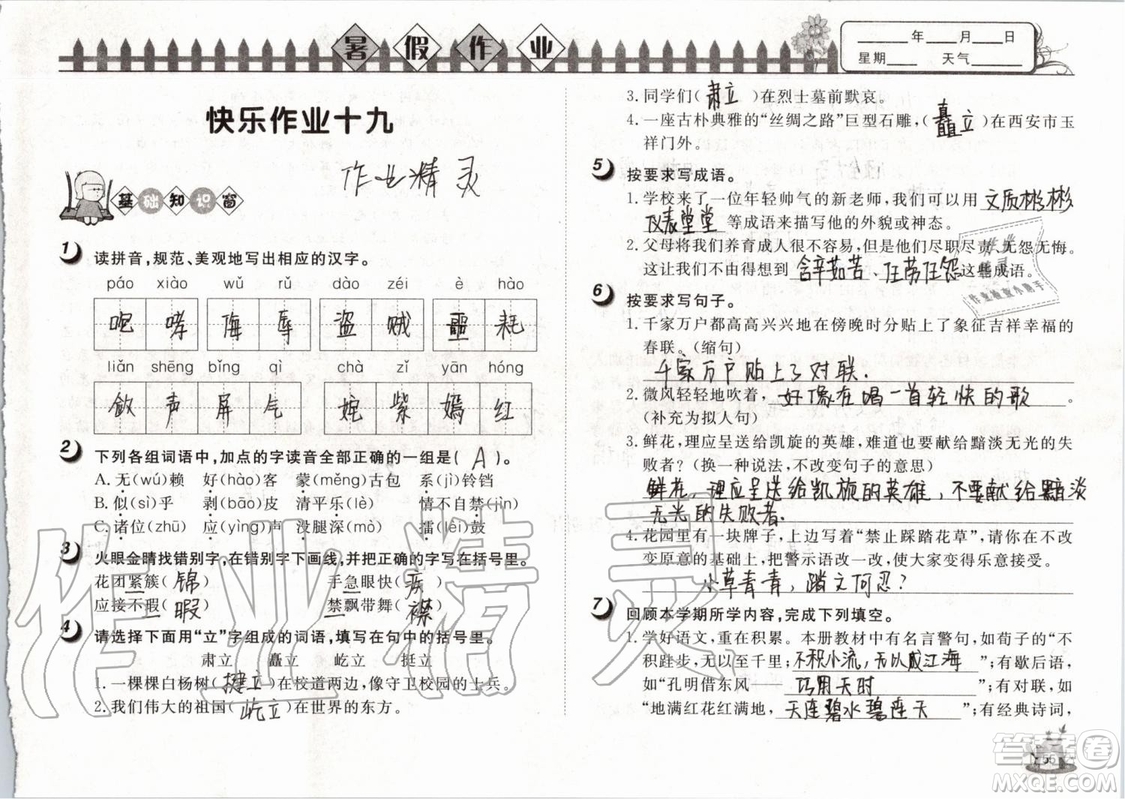 暑假作业
____年____月____日
星期____ 天气____
快乐作业十九
作业精灵
基础知识窗
1 读拼音,规范、美观地写出相应的汉字。
páo xiào wǔ rǔ dào zéi è hào
咆哮 侮辱 盗贼 噩耗
liǎn shēng bǐng qì chà zǐ yān hóng
敛声屏气 姹紫嫣红
2 下列各组词语中,加点的字读音全部正确的一组是( A )。
A.无(wú)赖 好(hào)客 蒙(měng)古包 系(jì)铃铛
B.似(sì)乎 剥(bāo)皮 清平乐(lè) 情不自禁(jīn)
C.诸位(zhū) 应(yìng)声 没腿深(mò) 擂(léi)鼓
3 火眼金睛找错别字,在错别字下画线,并把正确的字写在括号里。
花团紧簇( 锦 ) 手急眼快( 疾 )
应接不瑕( 暇 ) 禁飘带舞( 襟 )
4 请选择下面用“立”字组成的词语,填写在句中的括号里。
肃立 矗立 屹立 挺立
1.一棵棵白杨树( 挺立 )在校道两边,像守卫校园的士兵。
2.我们伟大的祖国( 屹立 )在世界的东方。
3.同学们( 肃立 )在烈士墓前默哀。
4.一座古朴典雅的“丝绸之路”巨型石雕,( 矗立 )在西安市玉
祥门外。
5 按要求写成语。
1.学校来了一位年轻帅气的新老师,我们可以用 文质彬彬
仪表堂堂 等成语来描写他的外貌或神态。
2.父母将我们养育成人很不容易,但是他们尽职尽责、无怨无悔。
这让我们不由得想到 含辛茹苦、任劳任怨 这些成语。
6 按要求写句子。
1.千家万户都高高兴兴地在傍晚时分贴上了象征吉祥幸福的
春联。(缩句)
千家万户贴上了对联.
2.微风轻轻地吹着, 好像在唱一首轻快的歌 。
(补充为拟人句)
3.鲜花,理应呈送给凯旋的英雄,难道也要献给黯淡无光的失
败者?(换一种说法,不改变句子的意思)
鲜花,理应呈送给凯旋的英雄,不要献给黯淡
无光的失败者.
4.花园里有一块牌子,上边写着“禁止踩踏花草”,请你在不改
变原意的基础上,把警示语改一改,使其变得乐意接受。
小草青青,踏之何忍?
7 回顾本学期所学内容,完成下列填空。
1.学好语文,重在积累。本册教材中有名言警句,如荀子的“不
积跬步,无以至千里; 不积小流,无以成江海 ”;有歇后语,
如“孔明借东风—— 巧用天时 ”;有对联,如
“地满红花红满地, 天连碧水碧连天 ”;有经典诗词,
作业精灵
答案卷
MXQE.COM